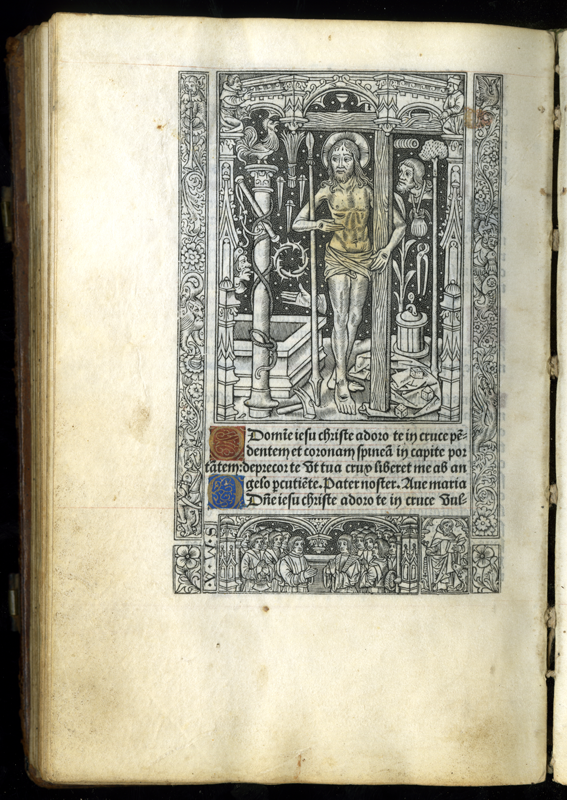 Domīe iesu christe adoro te in cruce pē=
dentem et coronam spineā in capite por
tātem: deprecor te Vt tua crux liberet me ab an
gelo pcutiēte. Pater noster. Aue maria
Dñe iesu christe adoro te in cruce Vul-